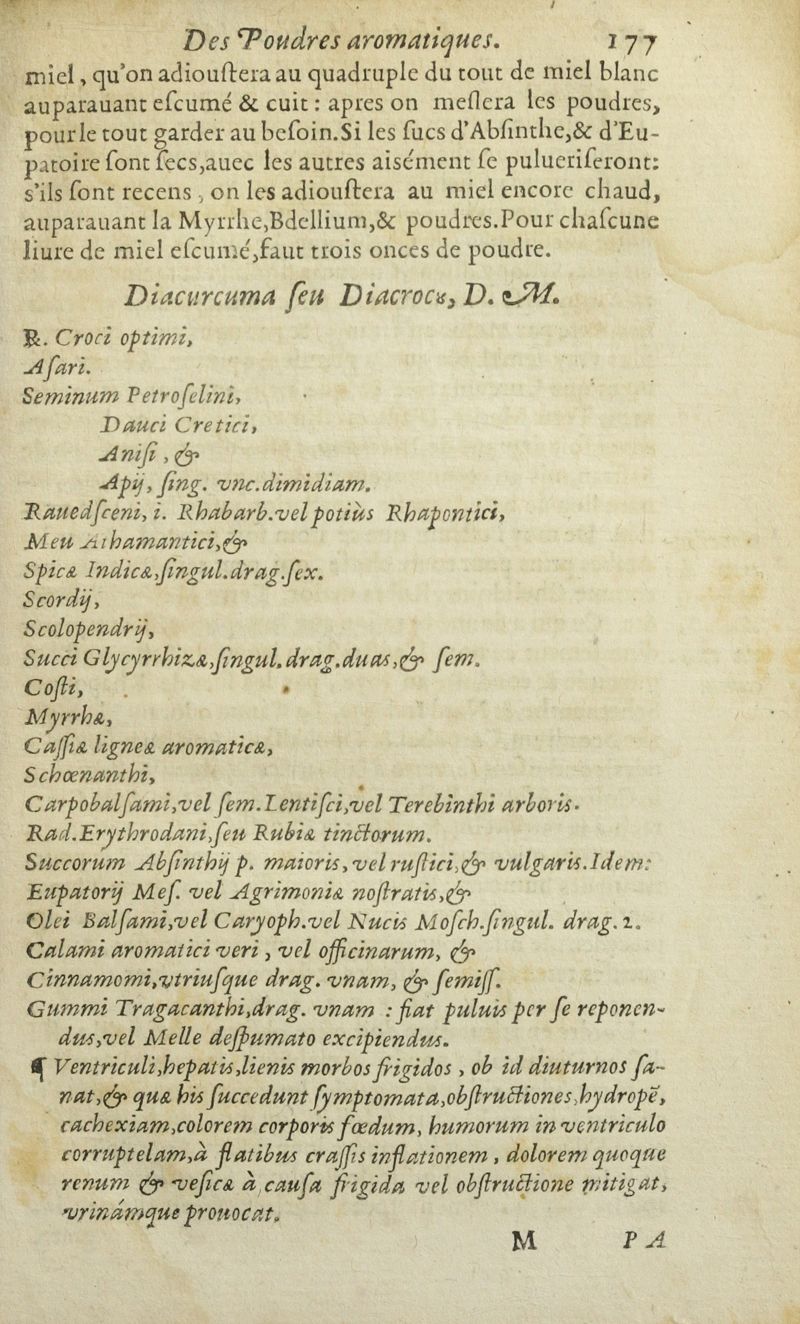 Des Poudres aromatiques. 177
miel, qu'on adiouſtera au quadruple du tout de miel blanc
auparauant eſcumé & cuit : apres on meſlera les poudres,
pour le tout garder au beſoin. Si les ſucs d'Abſinthe, & d'Eu-
patoire ſont ſecs, auec les autres aisément ſe pulueriſeront:
s'ils ſont recens, on les adiouſtera au miel encore chaud,
auparauant la Myrrhe, Bdellium, & poudres. Pour chaſcune
liure de miel eſcumé, faut trois onces de poudre.
Diacurcuma ſeu Diacrocu, D. M.
℞. Croci optimi,
Aſari.
Seminum Petroſelini,
Dauci Cretici,
Aniſi, &
Apij, ſing. vnc. dimidiam.
Rauedſceni, i. Rhabarb. vel potiùs Rhapontici,
Meu Athamantici, &
Spicæ Indicæ, ſingul. drag. ſex.
Scordij,
Scolopendrij,
Succi Glycyrrhizæ, ſingul. drag. duas, & ſem.
Coſti,
Myrrhæ,
Caſſiæ ligneæ aromaticæ,
Schœnanthi,
Carpobalſami, vel ſem. Lentiſci, vel Terebinthi arboris.
Rad. Erythrodani, ſeu Rubiæ tinctorum.
Succorum Abſinthij p. maioris, vel ruſtici, & vulgaris. Idem:
Eupatorij Meſ. vel Agrimoniæ noſtratis, &
Olei Balſami, vel Caryoph. vel Nucis Moſch. ſingul. drag. 2.
Calami aromatici veri, vel officinarum, &
Cinnamomi, vtriuſque drag. vnam, & ſemiſſ.
Gummi Tragacanthi, drag. vnam : fiat puluis per ſe reponen-
dus, vel Melle deſpumato excipiendus.
¶ Ventriculi, hepatis, lienis morbos frigidos, ob id diuturnos ſa-
nat, & quæ his ſuccedunt ſymptomata, obſtructiones, hydropẽ,
cachexiam, colorem corporis fœdum, humorum in ventriculo
corruptelam, à flatibus craſſis inflationem, dolorem quoque
renum & veſicæ à cauſa frigida vel obſtructione mitigat,
vrinámque prouocat.
M PA